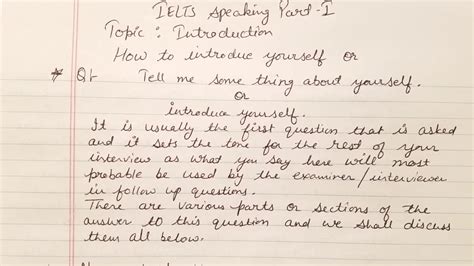 IELTS Speaking Part-I
Topic : Introduction
How to introduce yourself or
* Q1 Tell me some thing about yourself.
or
introduce yourself.
It is usually the first question that is asked
and it sets the tone for the rest of your
interview as what you say here will most
probable be used by the examiner/interviewer
in follow up questions.
There are various parts or sections of the
answer to this question and we shall discuss
them all below.